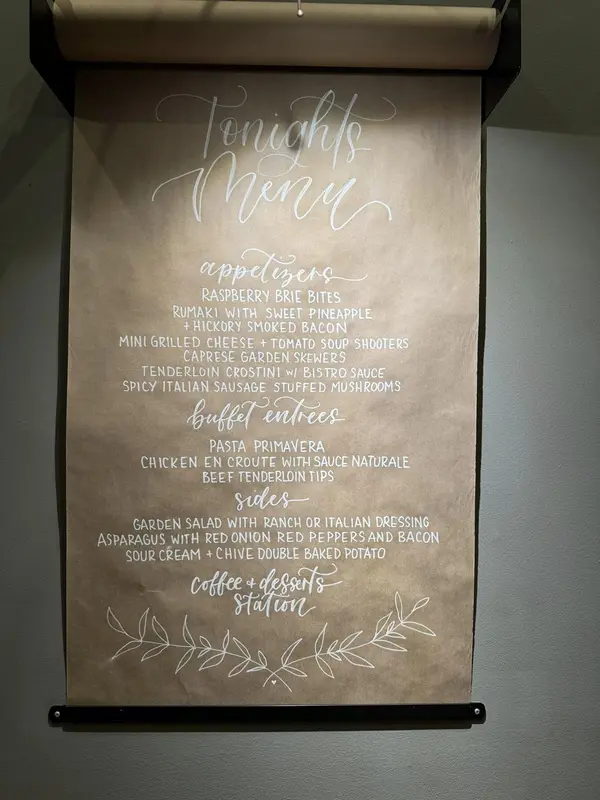 Tonights
Menu
appetizers
RASPBERRY BRIE BITES
RUMAKI WITH SWEET PINEAPPLE
+ HICKORY SMOKED BACON
MINI GRILLED CHEESE + TOMATO SOUP SHOOTERS
CAPRESE GARDEN SKEWERS
TENDERLOIN CROSTINI W/ BISTRO SAUCE
SPICY ITALIAN SAUSAGE STUFFED MUSHROOMS
buffet entrees
PASTA PRIMAVERA
CHICKEN EN CROUTE WITH SAUCE NATURALE
BEEF TENDERLOIN TIPS
sides
GARDEN SALAD WITH RANCH OR ITALIAN DRESSING
ASPARAGUS WITH RED ONION RED PEPPERS AND BACON
SOUR CREAM + CHIVE DOUBLE BAKED POTATO
coffee + desserts
station